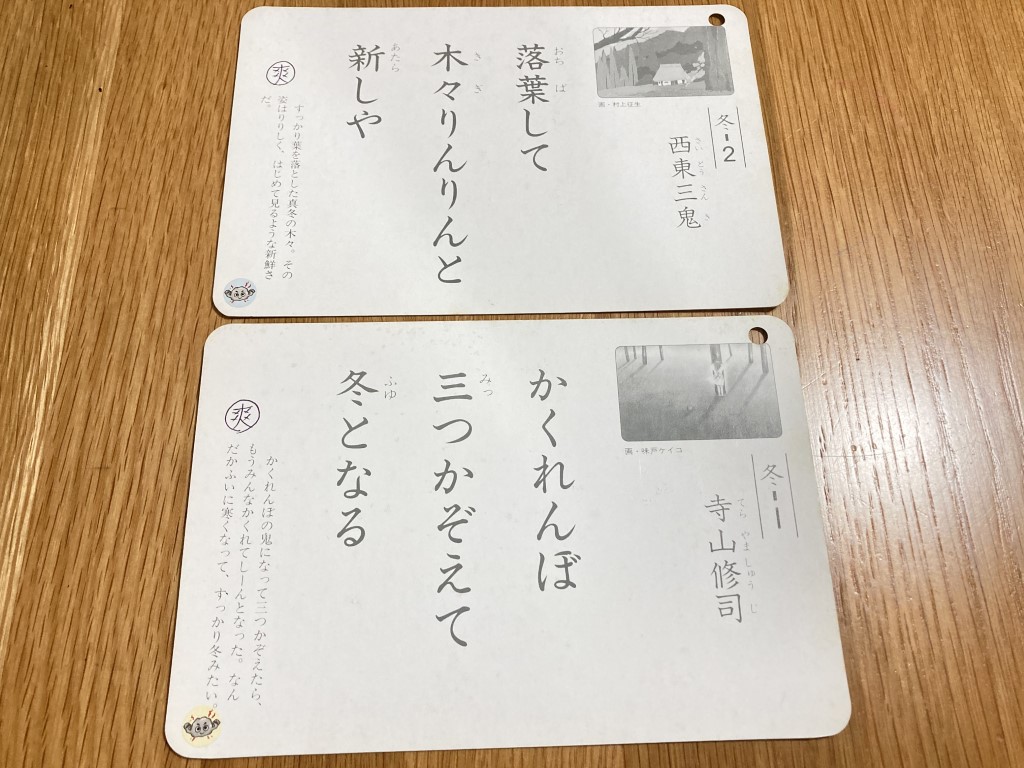 冬-2
西東三鬼
さいとうさんき
画・村上征生
落葉して
おちば
木々りんりんと
きぎ
新しや
あたら
爽
すっかり葉を落とした真冬の木々。その
姿はりりしく、はじめて見るような新鮮さ
だ。
冬-1
寺山修司
てらやましゅうじ
画・味戸ケイコ
かくれんぼ
三つかぞえて
みっ
冬となる
ふゆ
爽
かくれんぼの鬼になって三つかぞえたら、
もうみんなかくれてしーんとなった。なん
だかふいに寒くなって、すっかり冬みたい。